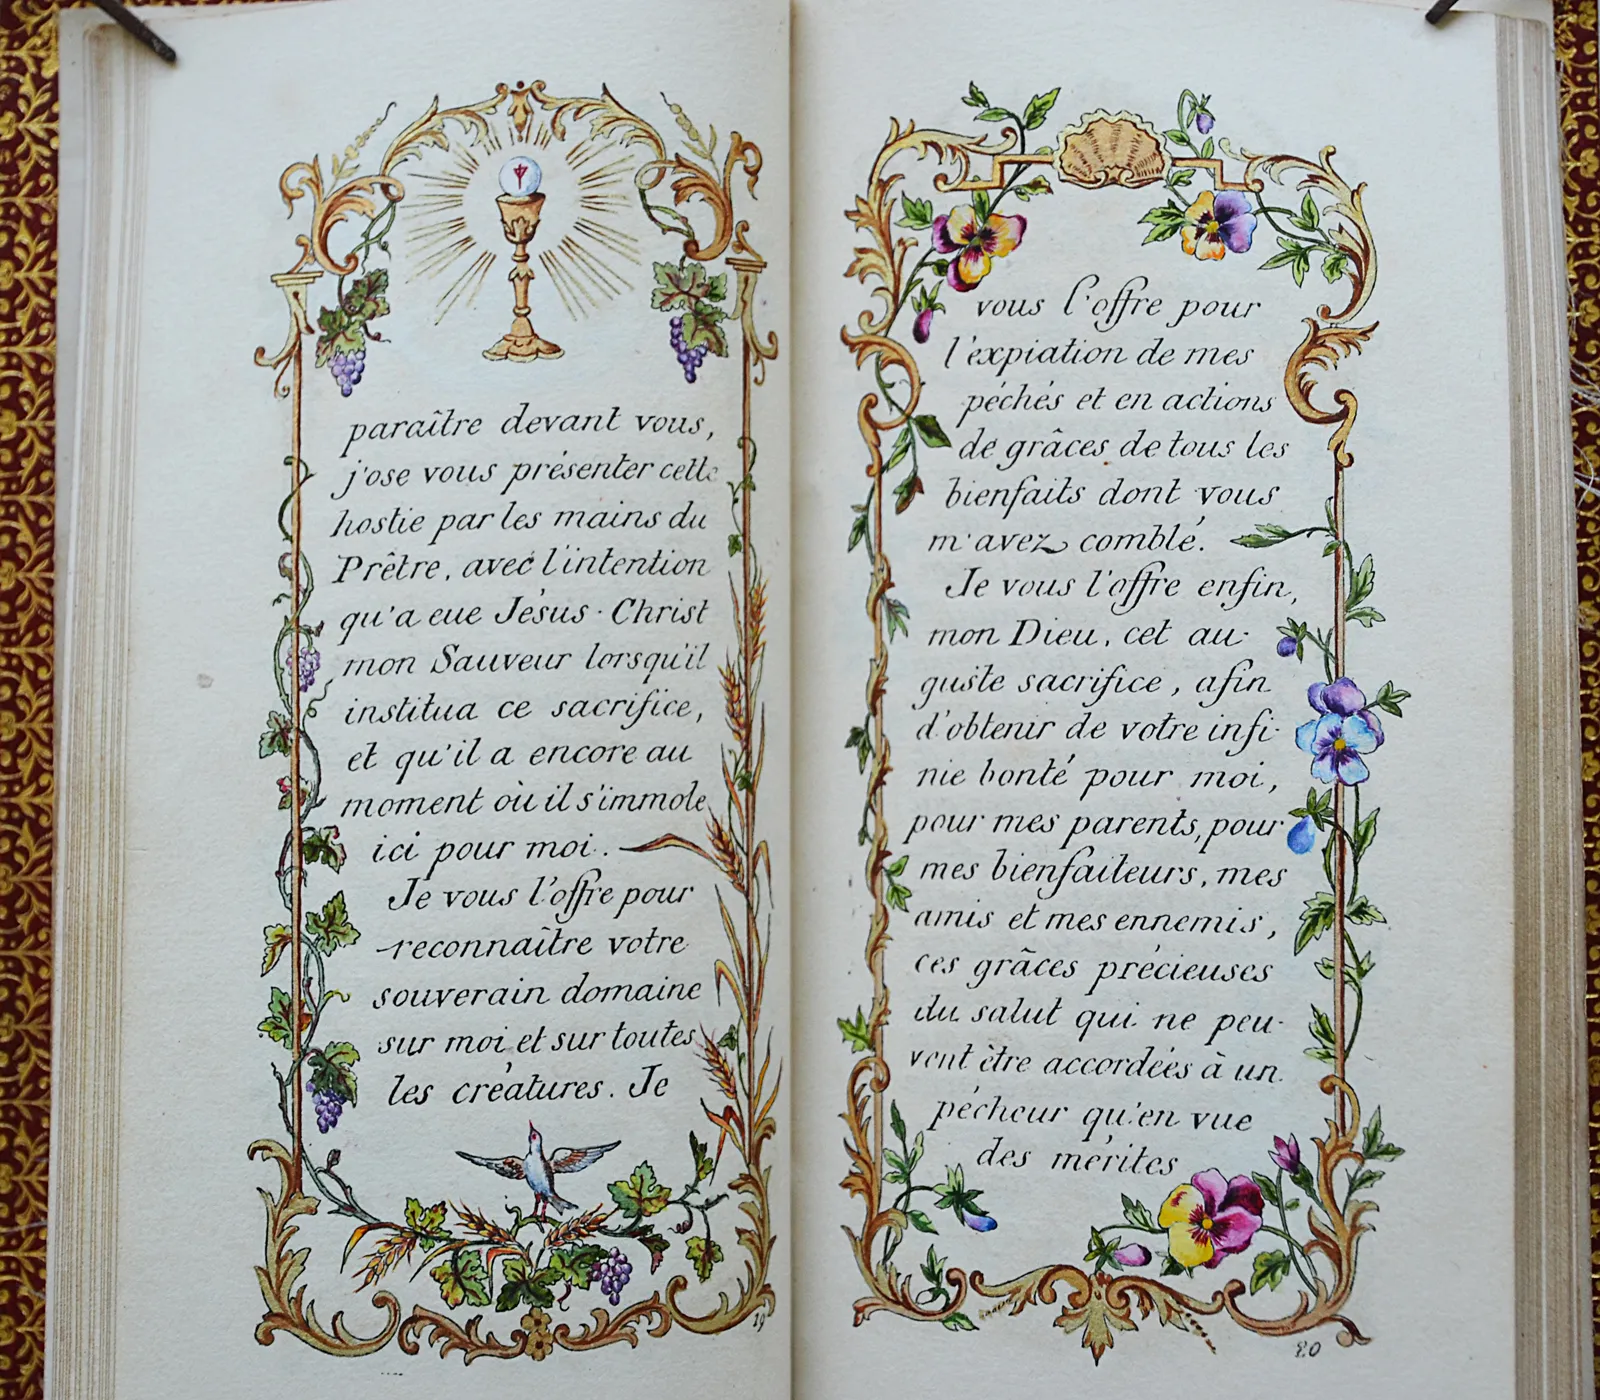 paraître devant vous,
j'ose vous présenter cette
hostie par les mains du
Prêtre, avec l'intention
qu'a eue Jésus-Christ
mon Sauveur lorsqu'il
institua ce sacrifice,
et qu'il a encore au
moment où il s'immole
ici pour moi.
Je vous l'offre pour
reconnaître votre
souverain domaine
sur moi et sur toutes
les créatures. Je
19
vous l'offre pour
l'expiation de mes
péchés et en actions
de grâces de tous les
bienfaits dont vous
m'avez comblé.
Je vous l'offre enfin,
mon Dieu, cet au-
guste sacrifice, afin
d'obtenir de votre infi-
nie bonté pour moi,
pour mes parents, pour
mes bienfaiteurs, mes
amis et mes ennemis,
ces grâces précieuses
du salut qui ne peu-
vent être accordées à un
pécheur qu'en vue
des mérites
20